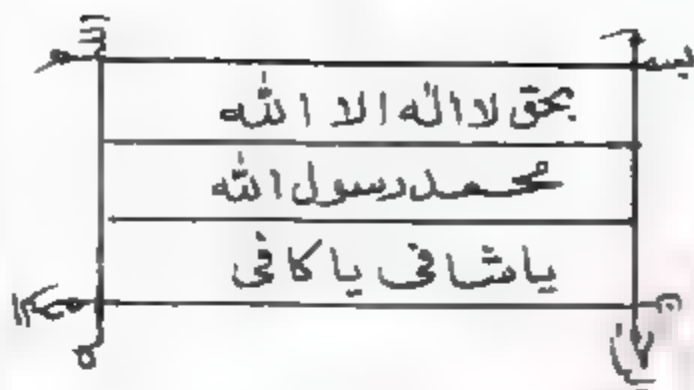 بحق لا اله الا الله
محمد رسول الله
یا شافی یا کافی